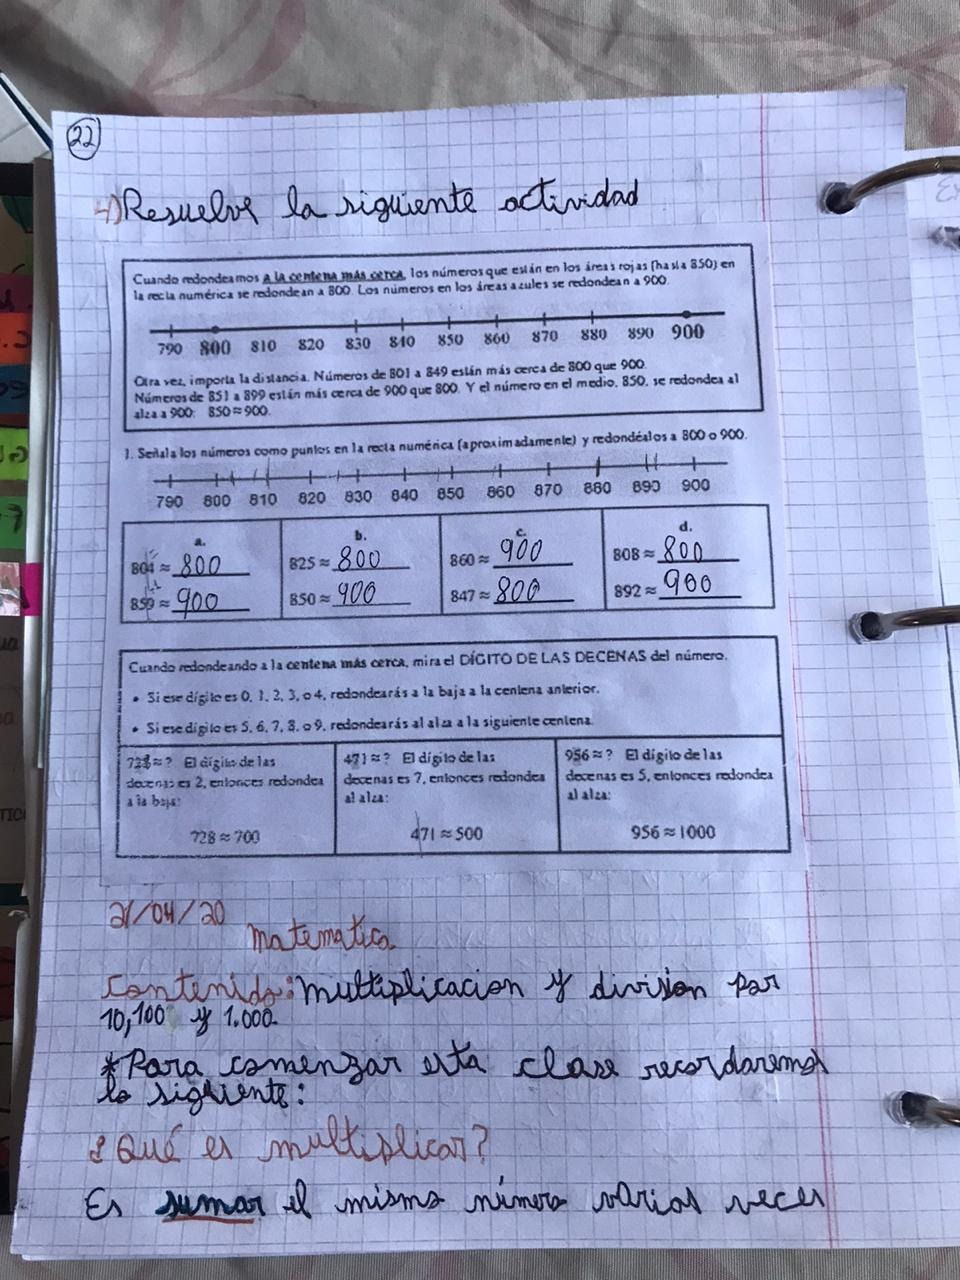 22
4) Resuelve la siguiente actividad
Cuando redondeamos a la centena más cerca, los números que están en las áreas rojas (hasta 850) en
la recta numérica se redondean a 800. Los números en los áreas azules se redondean a 900.
790 800 810 820 830 840 850 860 870 880 890 900
Otra vez, importa la distancia. Números de 801 a 849 están más cerca de 800 que 900.
Números de 851 a 899 están más cerca de 900 que 800. Y el número en el medio, 850, se redondea al
alza a 900: 850≈900.
1. Señala los números como puntos en la recta numérica (aproximadamente) y redondéalos a 800 o 900.
790 800 810 820 830 840 850 860 870 880 890 900
a. b. c. d.
804 ≈ 800 825 ≈ 800 860 ≈ 900 808 ≈ 800
859 ≈ 900 850 ≈ 900 847 ≈ 800 892 ≈ 900
Cuando redondeando a la centena más cerca, mira el DÍGITO DE LAS DECENAS del número.
• Si ese dígito es 0, 1, 2, 3, o 4, redondearás a la baja a la centena anterior.
• Si ese dígito es 5, 6, 7, 8, o 9, redondearás al alza a la siguiente centena.
728≈? El dígito de las
decenas es 2, entonces redondea
a la baja:
728 ≈ 700
471≈? El dígito de las
decenas es 7, entonces redondea
al alza:
471 ≈ 500
956≈? El dígito de las
decenas es 5, entonces redondea
al alza:
956 ≈ 1000
21/04/20
Matematica
Contenido: Multiplicacion y division por
10,100 y 1.000.
*Para comenzar esta clase recordaremos
lo siguiente:
¿Qué es multiplicar?
Es sumar el mismo número varias veces